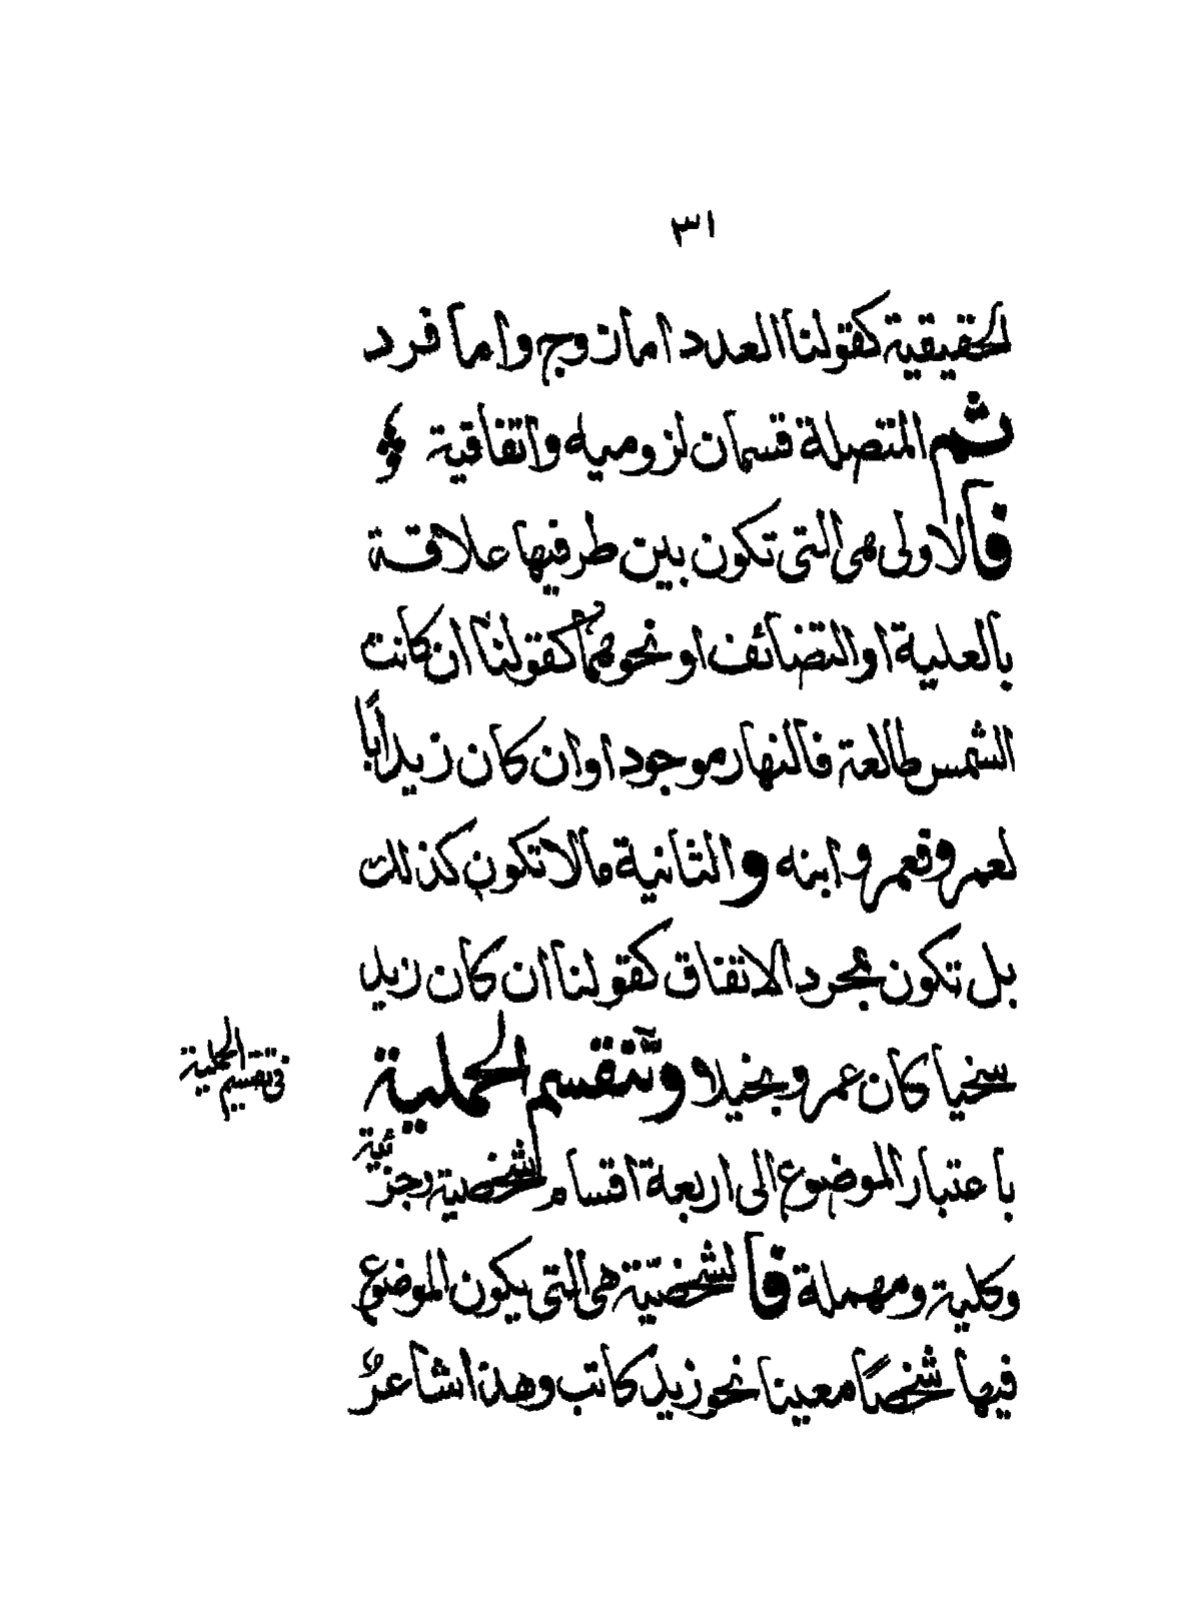 ٣١
الحقيقية كقولنا العدد اما زوج واما فرد
ثم المتصلة قسمان لزوميه واتفاقية
فالاولى هى التى تكون بين طرفيها علاقة
بالعلية او التضائف او نحوهما كقولنا ان كانت
الشمس طالعة فالنهار موجود او ان كان زيد ابًا
لعمرو فعمرو ابنه والثانية مالا تكون كذلك
بل تكون بمجرد الاتفاق كقولنا ان كان زيد
سخيا كان عمرو بخيلا وتنقسم الحملية
فى تقسيم الحملية
باعتبار الموضوع الى اربعة اقسام شخصية وجزئية
وكلية ومهملة فالشخصيّة هى التى يكون الموضوع
فيها شخصًا معينا نحو زيد كاتب وهذا شاعرٌ